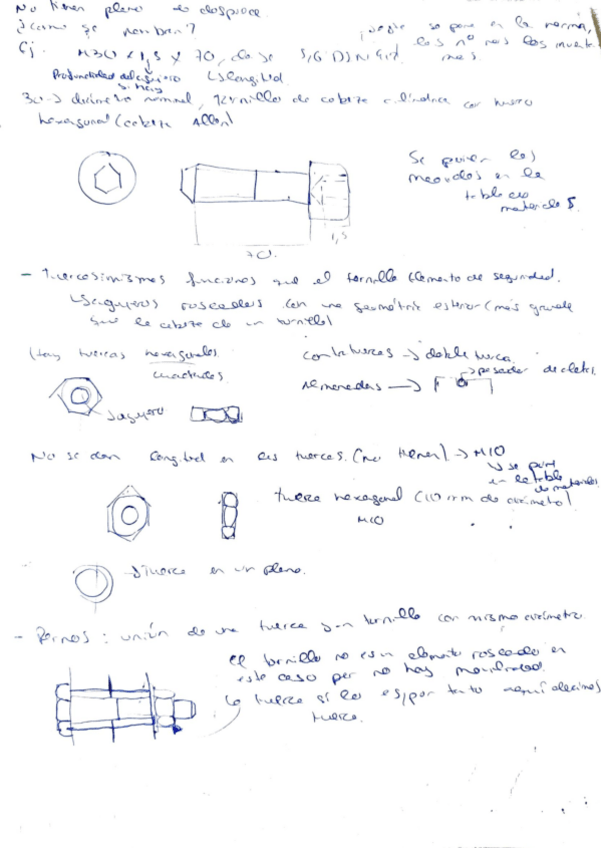 No tienen plano de despiece.
¿Como se nombran?
puede se pone en la norma,
los nº nos los inventamos.
Ej. M30 x 1,5 x 70, de
Profundidad del agujero
si hay
↳ longitud.
30 → diámetro nominal, tornillos de cabeza cilíndrica con hueco
hexagonal (cabeza Allen)
Se ponen las
medidas en la
tabla de
materiales.
1,5
70.
- Tuercas: mismas funciones que el tornillo Elemento de seguridad.
↳ agujeros roscados con una geometría exterior (más grande
que la cabeza de un tornillo)
(Hay tuercas hexagonales
cuadradas
contratuercas → doble tuerca.
→ pasador de aleta.
almenadas →
→ agujero
No se dan longitud en las tuercas. (no tienen) → M10
↳ se pone
en la tabla
de materiales
tuerca hexagonal (10 mm de diámetro)
M10
→ tuerca en un plano.
- Pernos: unión de una tuerca y un tornillo con mismo diámetro.
el tornillo no es un elemento roscado en
este caso no hay
La tuerca si lo es, por tanto aquí decimos
tuerca.